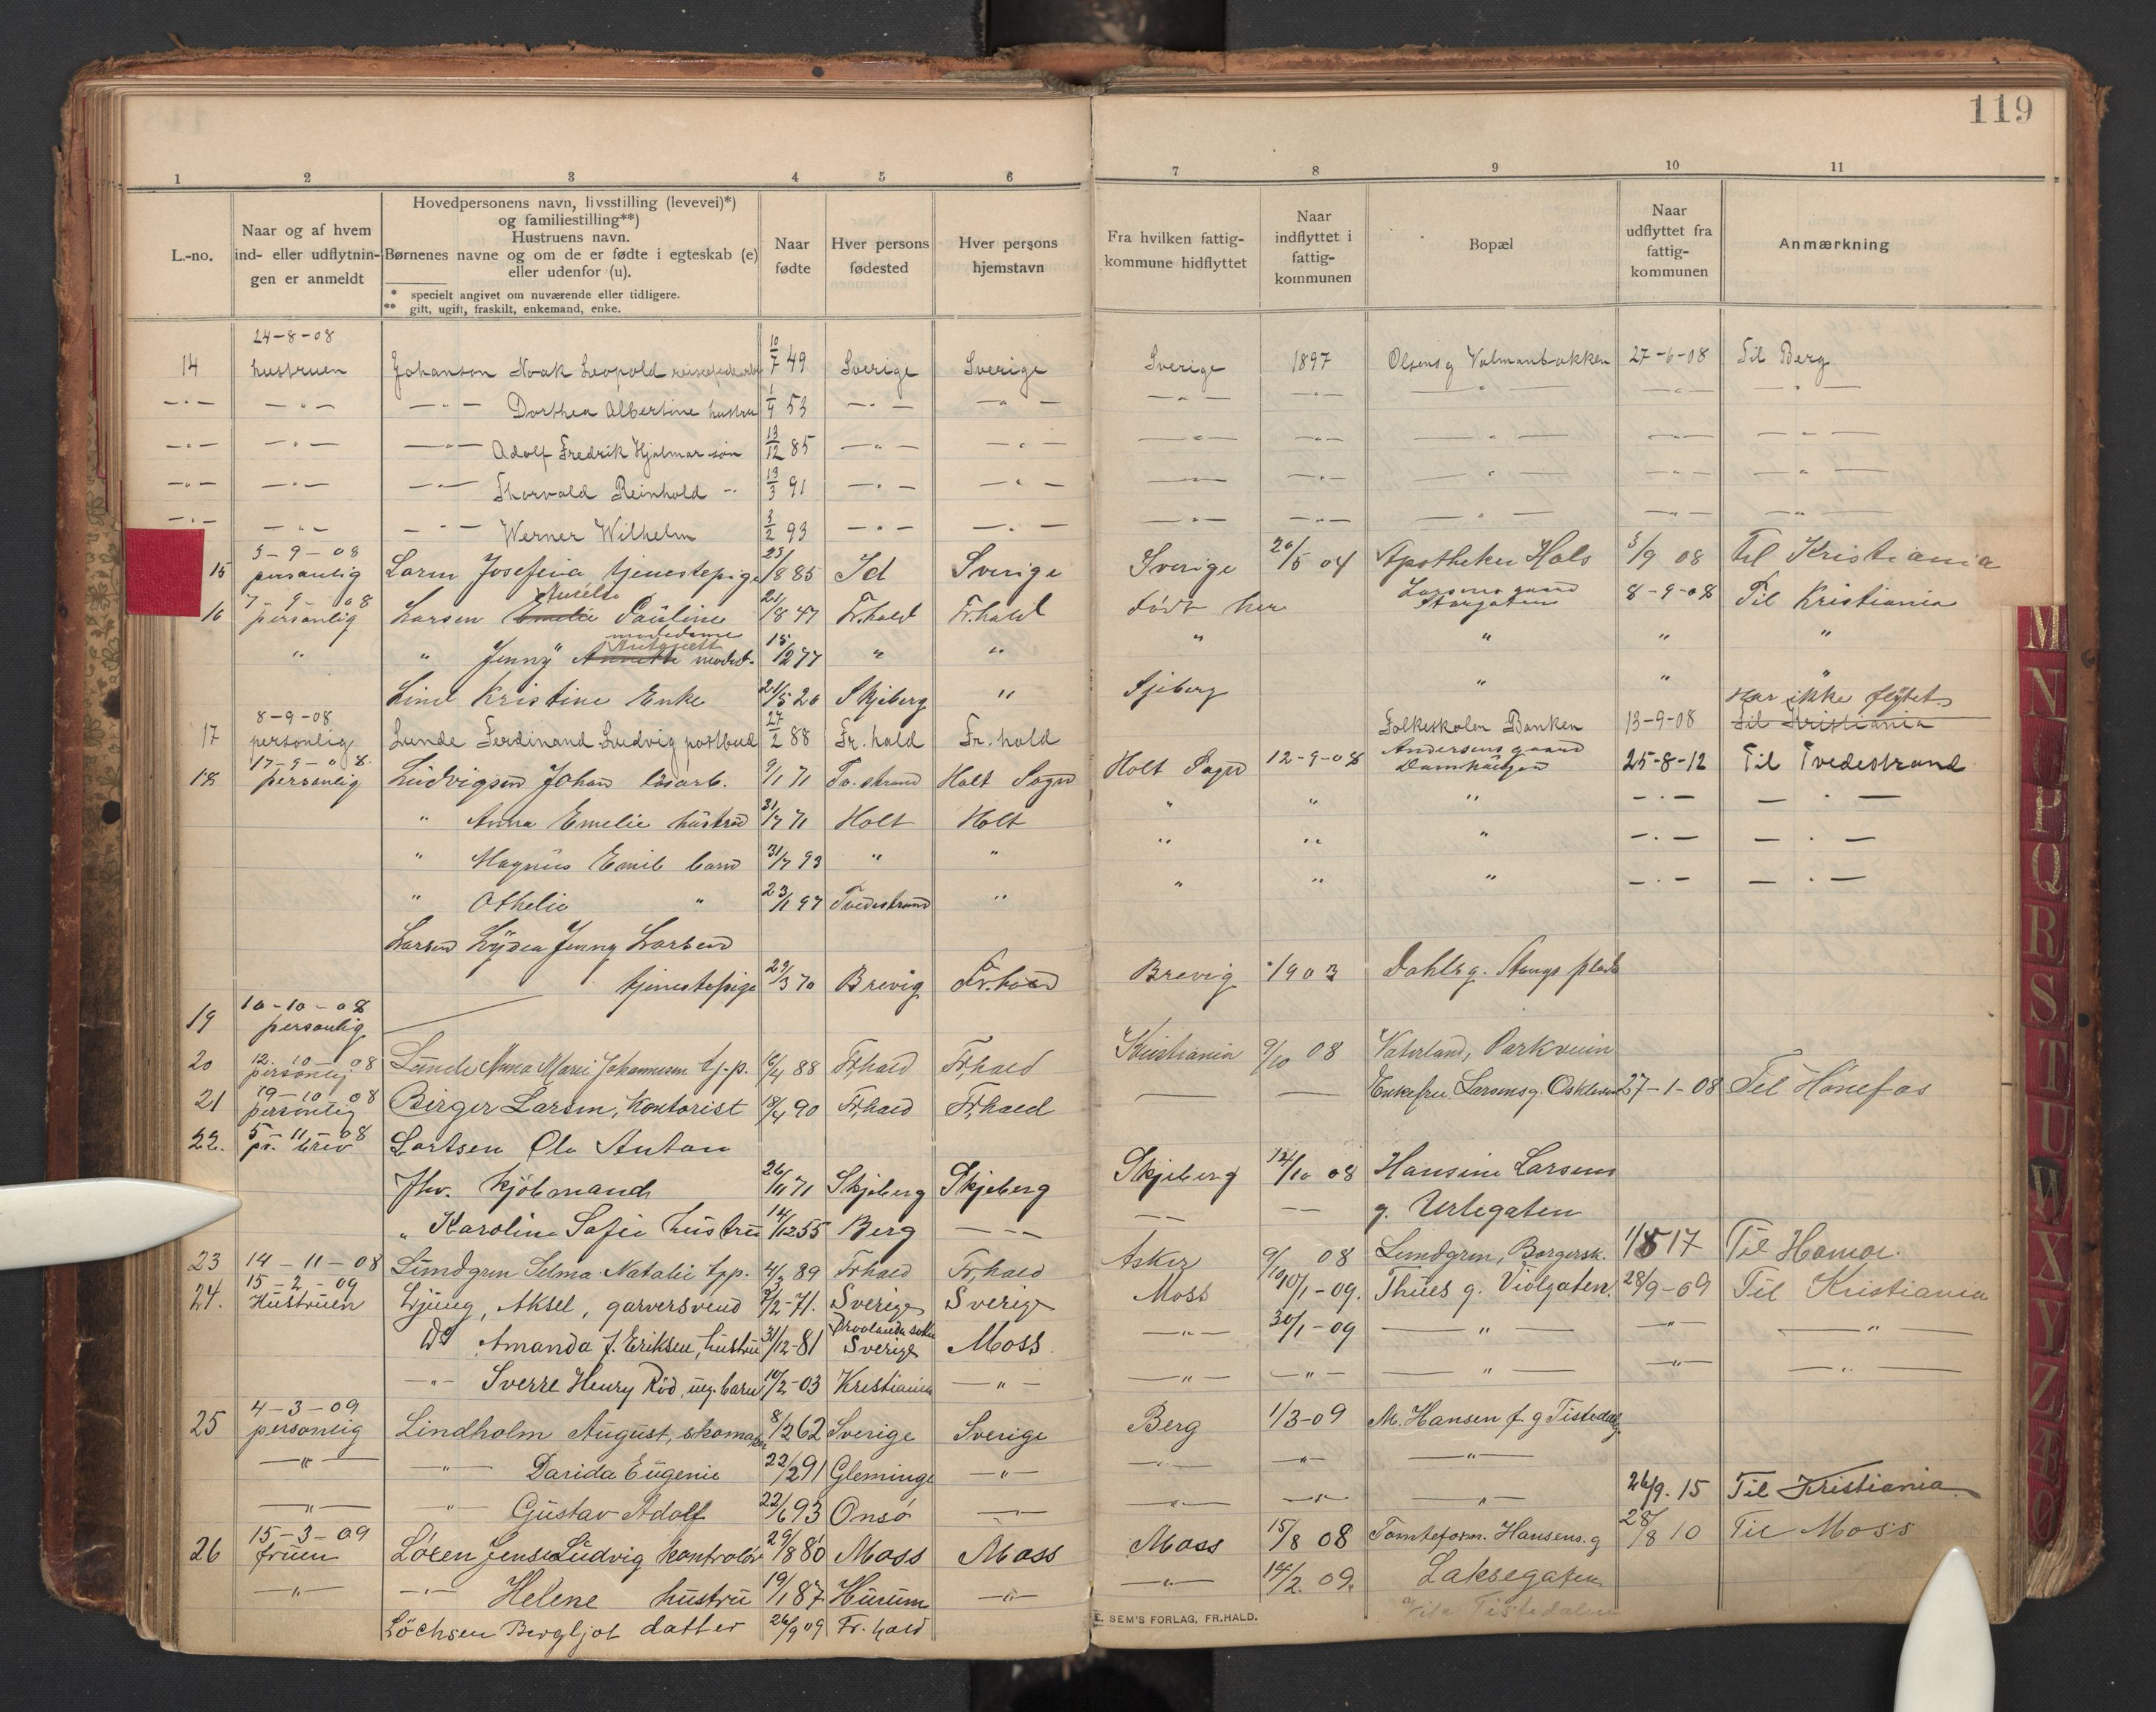 119
1 2 3 4 5 6 7 8 9 10 11
L.-no.
Naar og af hvem
ind- eller udflytnin-
gen er anmeldt
Hovedpersonens navn, livsstilling (levevei)*)
og familiestilling**)
Hustruens navn.
Børnenes navne og om de er fødte i egteskab (e)
eller udenfor (u).
* specielt angivet om nuværende eller tidligere.
** gift, ugift, fraskilt, enkemand, enke.
Naar
fødte
Hver persons
fødested
Hver persons
hjemstavn
Fra hvilken fattig-
kommune hidflyttet
Naar
indflyttet i
fattig-
kommunen
Bopæl
Naar
udflyttet fra
fattig-
kommunen
Anmærkning
24-8-08
14 hustruen Johanson Noak Leopold 10/7 49 Sverige Sverige Sverige 1897 Olsens g Valmanbakken 27-6-08 Til Berg
—"— —"— —"— Dorthea Albertine hustru 1/9 53 —"— —"— —"— —"— —"— —"— —"—
—"— —"— —"— Adolf Fredrik Hjalmar søn 13/12 85 —"— —"— —"— —"— —"— —"— —"—
—"— —"— —"— Thorvald Reinhold —"— 13/3 91 —"— —"— —"— —"— —"— —"— —"—
—"— —"— —"— Werner Wilhelm 3/2 93 —"— —"— —"— —"— —"— —"— —"—
3-9-08
15 personlig Larm Josefina, tjenestepige 23/8 85 Id Sverige Sverige 26/5 04 Apotheker Hals 3/9 08 Til Kristiania
7-9-08
16 personlig Larsen Emelie Pauline 21/8 47 Fr.hald Fr.hald født her Larsens gaard Storgaten 8-9-08 Til Kristiania
modedame
" " Jenny Annette moded. 15/12 77 " " " " " "
Lind Kristine Enke 21/5 20 Skjeberg " Sjeberg " " "
Har ikke flyttet
8-9-08
17 personlig Lunde Ferdinand Ludvig postbud 27/2 88 Fr. hald Fr. hald Folkeskolen Banken 13-9-08 Til Kristiania
17-9-08
18 personlig Ludvigsen Johan løsarb. 9/1 71 Tv. strand Holt Sogn Holt Sogn 12-9-08 Andersens gaard 25-8-12 Til Tvedestrand
" Anna Emelie hustru 31/7 71 Holt Holt " " " —"— —"—
" Magnus Emil barn 31/7 93 " " " " " —"— —"—
" Othelie " 23/11 97 Tvedestrand " " " " —"— —"—
Larsen Lydia Jenny Larsen
tjenestepige 29/3 70 Brevig Fr.hald Brevig 1903 Dahls g. Stangs plads
10-10-08
19 personlig
12-10-08
20 personlig Lunde Anna Marie Johannesen tj.p. 6/4 88 Fr.hald Fr.hald Kristiania 9/10 08 Vaterland, Parkveien
19-10-08
21 personlig Birger Larsen, Kontorist 18/4 90 Fr.hald Fr.hald — — Enkefru Larsens g. 27-1-08 Til Hønefos
5-11-08
22. pr. brev Lartsen Ole Anton
fhv. kjøbmand 26/11 71 Skjeberg Skjeberg Skjeberg 14/10 08 Hansine Larsens
" Karoline Sofie hustru 14/12 55 Berg — — — g. Urtegaten
23 14-11-08 Lundgren Selma Natalie tjp. 4/3 89 Fr.hald Fr.hald Asker 9/10 08 Lundgren, Borgersk. 1/5 17 Til Hamar.
15-2-09
24. Hustruen Ljung, Aksel, garversvend 3/2-71. Sverige Sverige Moss 10/1-09. Thues g. Violgaten. 28/9-09 Til Kristiania
Do Amanda f. Eriksen, hustru 31/12-81 Sverige Moss. —"— 30/1-09 —"— —"— —"—
—"— Sverre Henry Rød, ueg. barn 10/2-03 Kristiania —"— —"— —"— —"— —"— —"—
4-3-09
25 personlig Lindholm August, skomaker 8/2 62 Sverige Sverige Berg 1/3-09 M. Hansen f. g Tistedalg
—"— —"— Darida Eugenie 22/2 91 Gleminge —"— —"— —"— —"—
—"— —"— Gustav Adolf 22/6 93 Onsø —"— —"— —"— —"— 26/9. 15 Til Kristiania
15-3-09
26 fruen Løken Jens Ludvig kontrolør 29/8 80 Moss Moss Moss 15/8 08 Tomteform. Hansens. g 28/8 10 Til Moss
—"— —"— Helene hustru 19/1 87 Hurum —"— —"— 14/2. 09. Laksegaten
Löchsen Bergljot datter 26/9 09 Fr. hald
Tistedalen
E. SEM'S FORLAG, FR.HALD.
M
N
P
Q
R
S
T
U
W
X
Y
Z
Æ
Ø